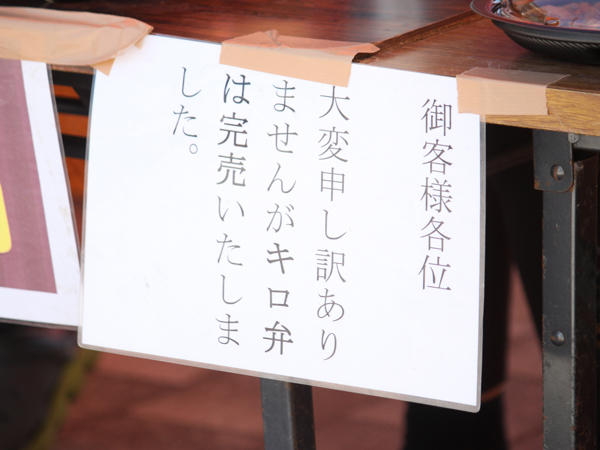 御客様各位
大変申し訳あり
ませんがキロ弁
は完売いたしま
した。